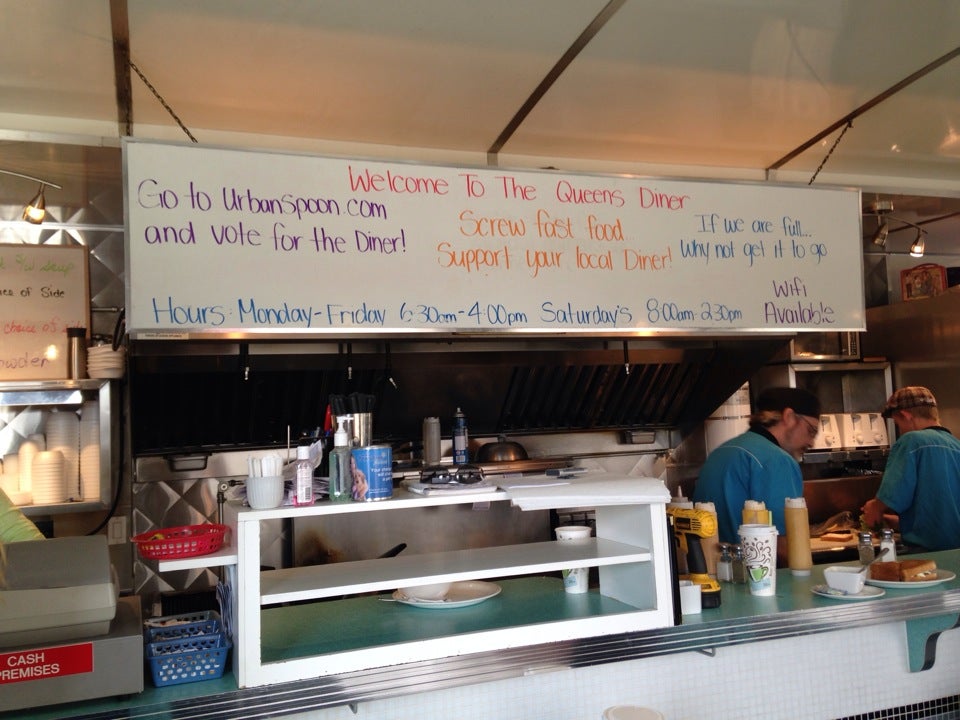 Welcome To The Queens Diner
Go to UrbanSpoon.com
and vote for the Diner!
Screw fast food
Support your local Diner!
If we are full...
Why not get it to go
Wifi
Available
Hours: Monday-Friday 6:30am-4:00pm Saturday's 8:00am-2:30pm
of Side
choice of
CASH
PREMISES